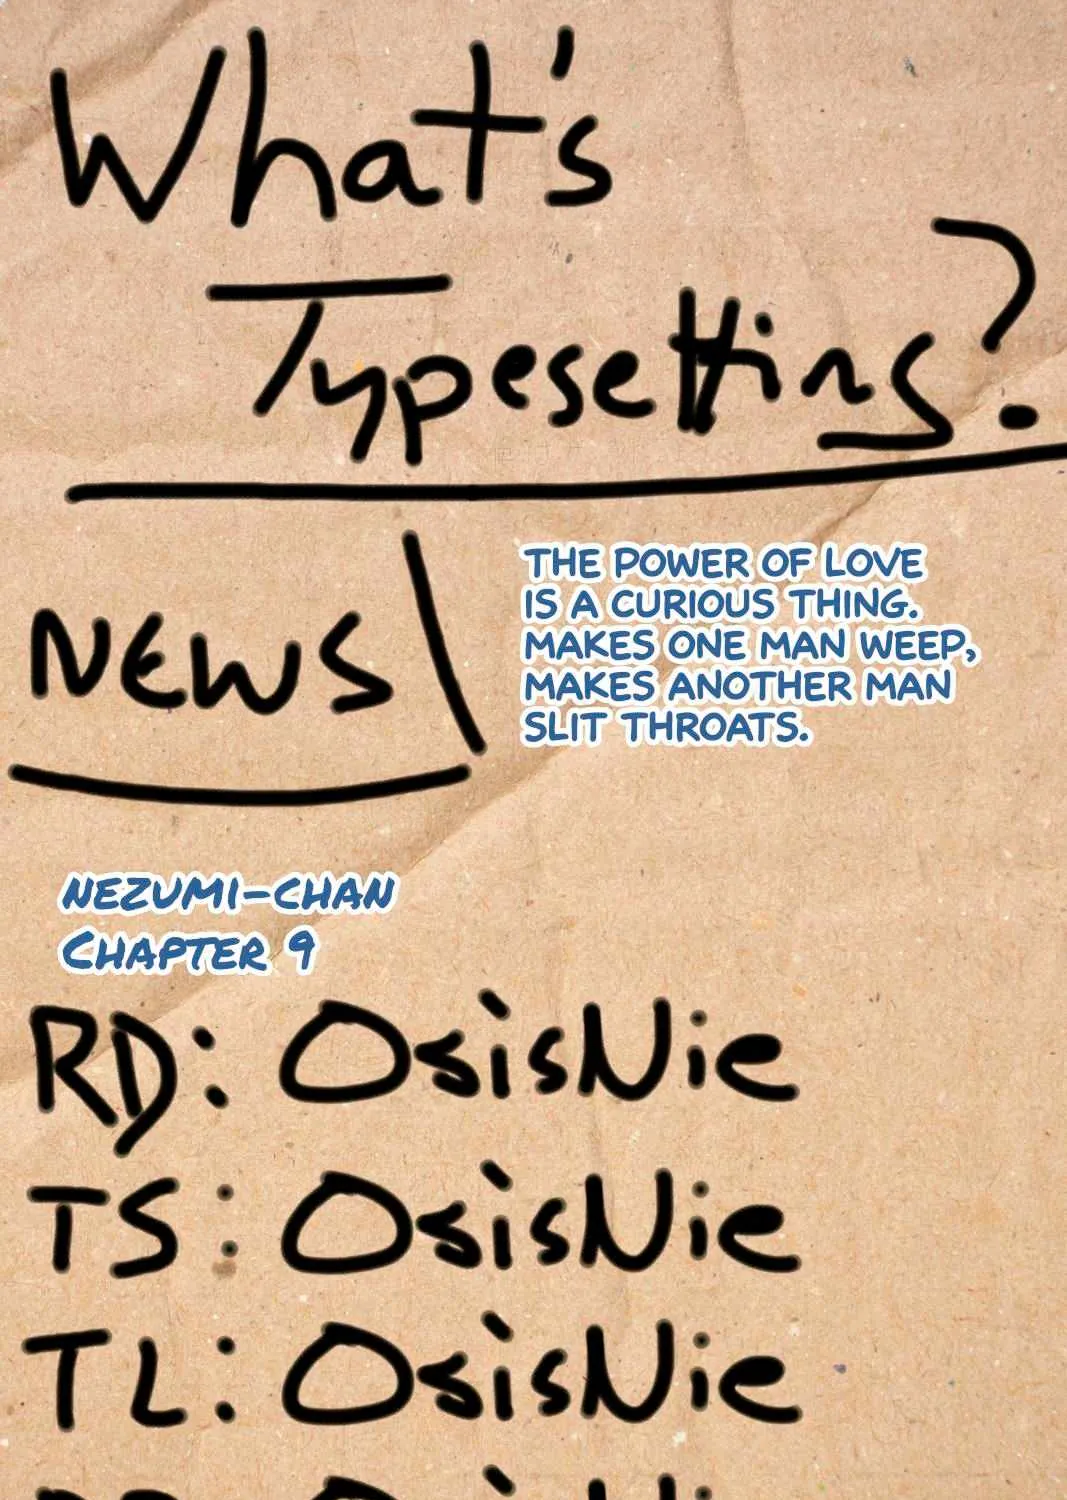 What's
Typesetting?
NEWS
THE POWER OF LOVE
IS A CURIOUS THING.
MAKES ONE MAN WEEP,
MAKES ANOTHER MAN
SLIT THROATS.
NEZUMI-CHAN
CHAPTER 9
RD: OsisNie
TS: OsisNie
TL: OsisNie